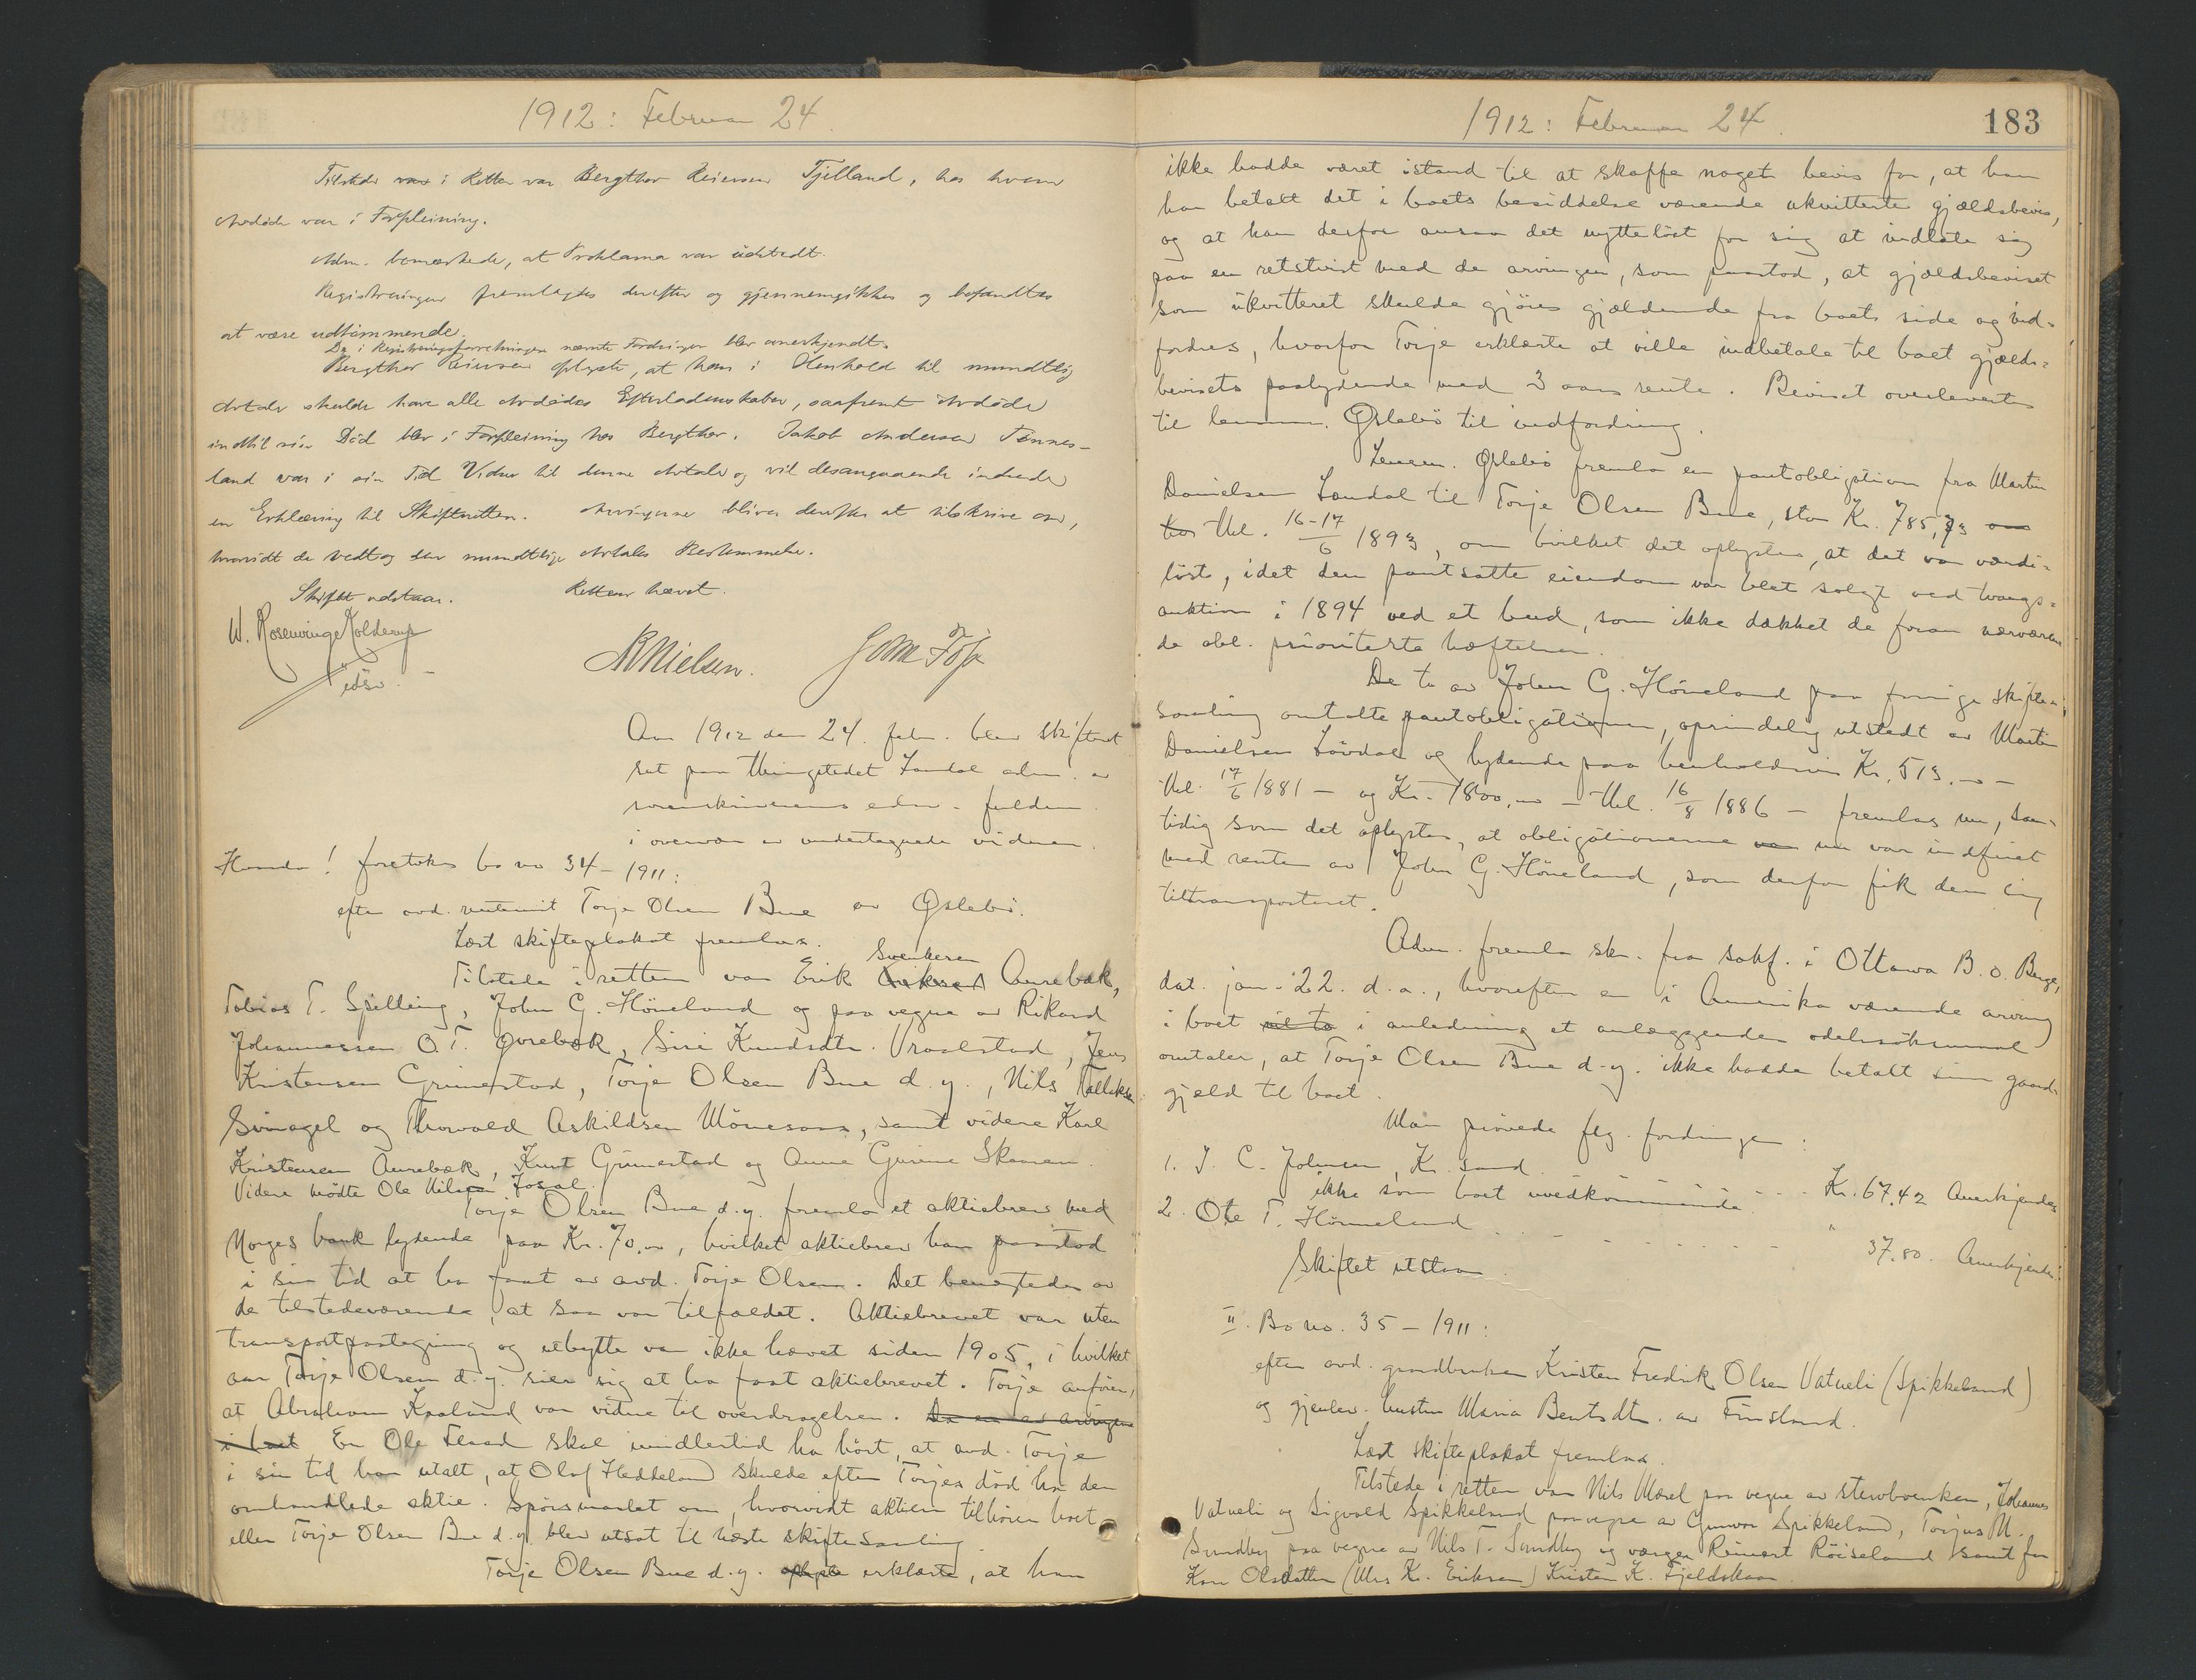 1912: Februar 24.
Tilstede var i Retten var Bergthor Reiersen Tjelland, hos hvem
Avdöde var i Forpleining.
Adm. bemærkede, at Proklama var udstedt.
Registreringen fremlagdes derefter og gjennemgikkes og befandtes
at være udtömmende.
De i Registreringsforretningen nævnte Fordringer blev anerkjendt.
Bergthor Reiersen oplyste, at han i Henhold til mundtlig
Avtale skulde have alle Avdödes Efterladenskaber, saafremt Avdöde
indtil sin Död blev i Forpleining hos Bergthor. Jakob Andersen Tönnes-
land var i sin Tid Vidne til denne Avtale og vil desangaaende indsende
en Erklæring til Skifteretten. Arvingerne bliver derefter at tilskrive om,
hvorvidt de vedtog den mundtlige Avtales Bestemmelse.
Skiftet udstaar. Retten hævet.
W. Rosenvinge Kolderup
edsv.
N Nielsen.
Aar 1912 den 24. febr. blev skifteret
sat paa thingstedet Laudal adm. av
sorenskriverens edsv. fuldm.
i overvær av undertegnede vidner.
Hvorda! foretokes bo no 34 - 1911:
efter avd. rentenist Torje Olsen Bue av Öslebö.
Læst skifteplakat fremlaa.
Svenkesen
Tilstede i retten var Erik Eriksen Aurebæk,
Tobias T. Spilling, John G. Höneland og paa vegne av Rikard
Johannessen O. T. Övrebæk, Siri Knudsdtr. Vraalstad, Jens
Kristensen Grimestad, Torje Olsen Bue d. y., Nils Tallaksen
Svinagel og Thorvald Askildsen Mönesaas, samt videre Karl
Kristensen Aurebæk, Knut Grimestad og Anne Gurine Skaaren.
Videre mödte Ole Nilsen Josal.
Torje Olsen Bue d. y. fremla et aktiebrev ved
Norges bank lydende paa Kr. 70.00, hvilket aktiebrev han paastod
i sin tid at ha faat av avd. Torje Olsen. Det benegtedes av
de tilstedeværende, at saa var tilfældet. Aktiebrevet var uten
transportpaategning og utbytte var ikke hævet siden 1905, i hvilket
aar Torje Olsen d. y. sier sig at ha faat aktiebrevet. Torje anförer,
at Abraham Kaaland var vidne til overdragelsen. Da en av arvingerne
i boet En Ole Flaad skal imidlertid ha hört, at avd. Torje
i sin tid har utalt, at Olaf Heddeland skulde efter Torjes död ha den
omhandlede aktie. Spörsmaalet om, hvorvidt aktien tilhörer boet
eller Torje Olsen Bue d. y. blev utsat til næste skiftesamling.
Torje Olsen Bue d. y. oplyste erklærte, at han
1912: Februar 24.
183
ikke hadde været istand til at skaffe noget bevis for, at han
har betalt det i boets besiddelse værende ukvitterte gjældsbevis,
og at han derfor ansaa det nytteløst for sig at indlate sig
paa en retstvist med de arvinger, som paastod, at gjældsbeviset
som ukvitteret skulde gjöres gjældende fra boets side og ind-
fordres, hvorfor Torje erklærte at ville indbetale til boet gjælds-
bevisets paalydende med 3 aars rente. Beviset overleveres
til lensm. Öslebö til indfordring.
Lensm. Öslebö fremla en pantobligation fra Martin
Danielsen Laudal til Torje Olsen Bue, stor Kr. 785,73 om
hos thl. 16-17/6 1893, om hvilket det oplystes, at det var værdi-
löst, idet den pantsatte eiendom var blet solgt ved tvangs-
auktion i 1894 ved et bud, som ikke dækket de foran nærværen
de obl. prioriterte hæftelser.
De to av John G. Höneland paa forrige skifte-
samling omtalte pantobligationer, oprindelig utstedt av Martin
Danielsen Lövdal og lydende paa henholdsvis Kr. 513.00 -
thl. 17/6 1881 - og Kr. 1800.00 - thl. 16/8 1886 - fremlaa nu, sam-
tidig som det oplystes, at obligationerne var nu var indfriet
med renter av John G. Höneland, som derfor fik dem sig
tiltransporteret.
Adm. fremla skr. fra sakf. i Ottawa B. O. Berge,
dat. jan. 22. d. a., hvorefter en i Amerika værende arving
i boet vil ta i anledning et anlæggendes odelssöksmaal
omtaler, at Torje Olsen Bue d. y. ikke hadde betalt sin gaards-
gjeld til boet.
Man prövede flg. fordringer:
1. J. C. Johnsen, Kr. sand. . . . Kr. 67.42 Anerkjendes
ikke som boet uvedkommende.
2. Ole T. Hönneland . . . . . " 37.80. Anerkjendes.
Skiftet utstaar.
II. Bo no. 35 - 1911:
efter avd. grandbruker Kristen Fredrik Olsen Vatneli (Spikkeland)
og gjenlev. hustru Maria Bentsdtr. av Finsland.
Læst skifteplakat fremlaa.
Tilstede i retten var Nils Mærel paa vegne av stervboenken, Johannes
Vatneli og Sigvald Spikkeland paa vegne av Gunvor Spikkeland, Torjus M.
Sundby paa vegne av Nils T. Sundby og værgen Reinert Röiseland samt for
Karen Olsdatter (Mrs K. Eriksen) Kristen K. Fjeldskaar.